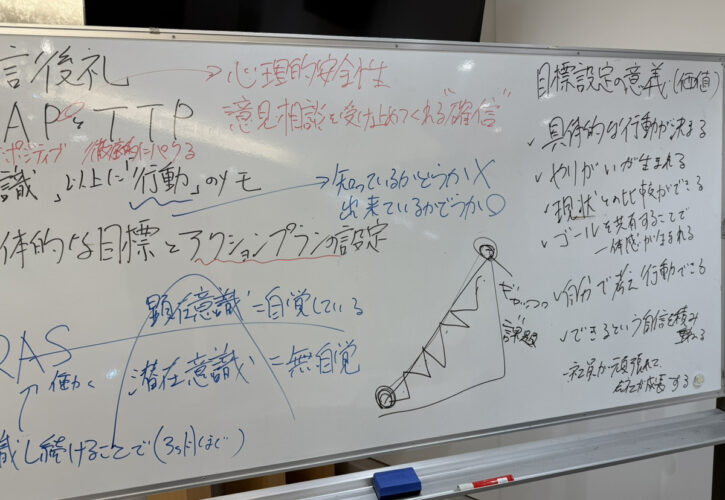 言後礼 → 心理的安全性
APとTTP 意見・相談を受け止めてくれる"確信"
ポジティブ 徹底的にパクる
識」以上に「行動」のメモ
→ 知っているかどうか×
出来ているかどうか○
体的な目標とアクションプランの設定
顕在意識=自覚している
RAS
↑働く 潜在意識=無自覚
識し続けることで(3ヶ月くらい)
課題
目標設定の意義(価値)
✓具体的な行動が決まる
✓やりがいが生まれる
✓現状との比較ができる
✓ゴールを共有することで
一体感が生まれる
✓自分で考え行動できる
✓できるという自信を積み
重ねる
社員が頑張れて
会社が成長する